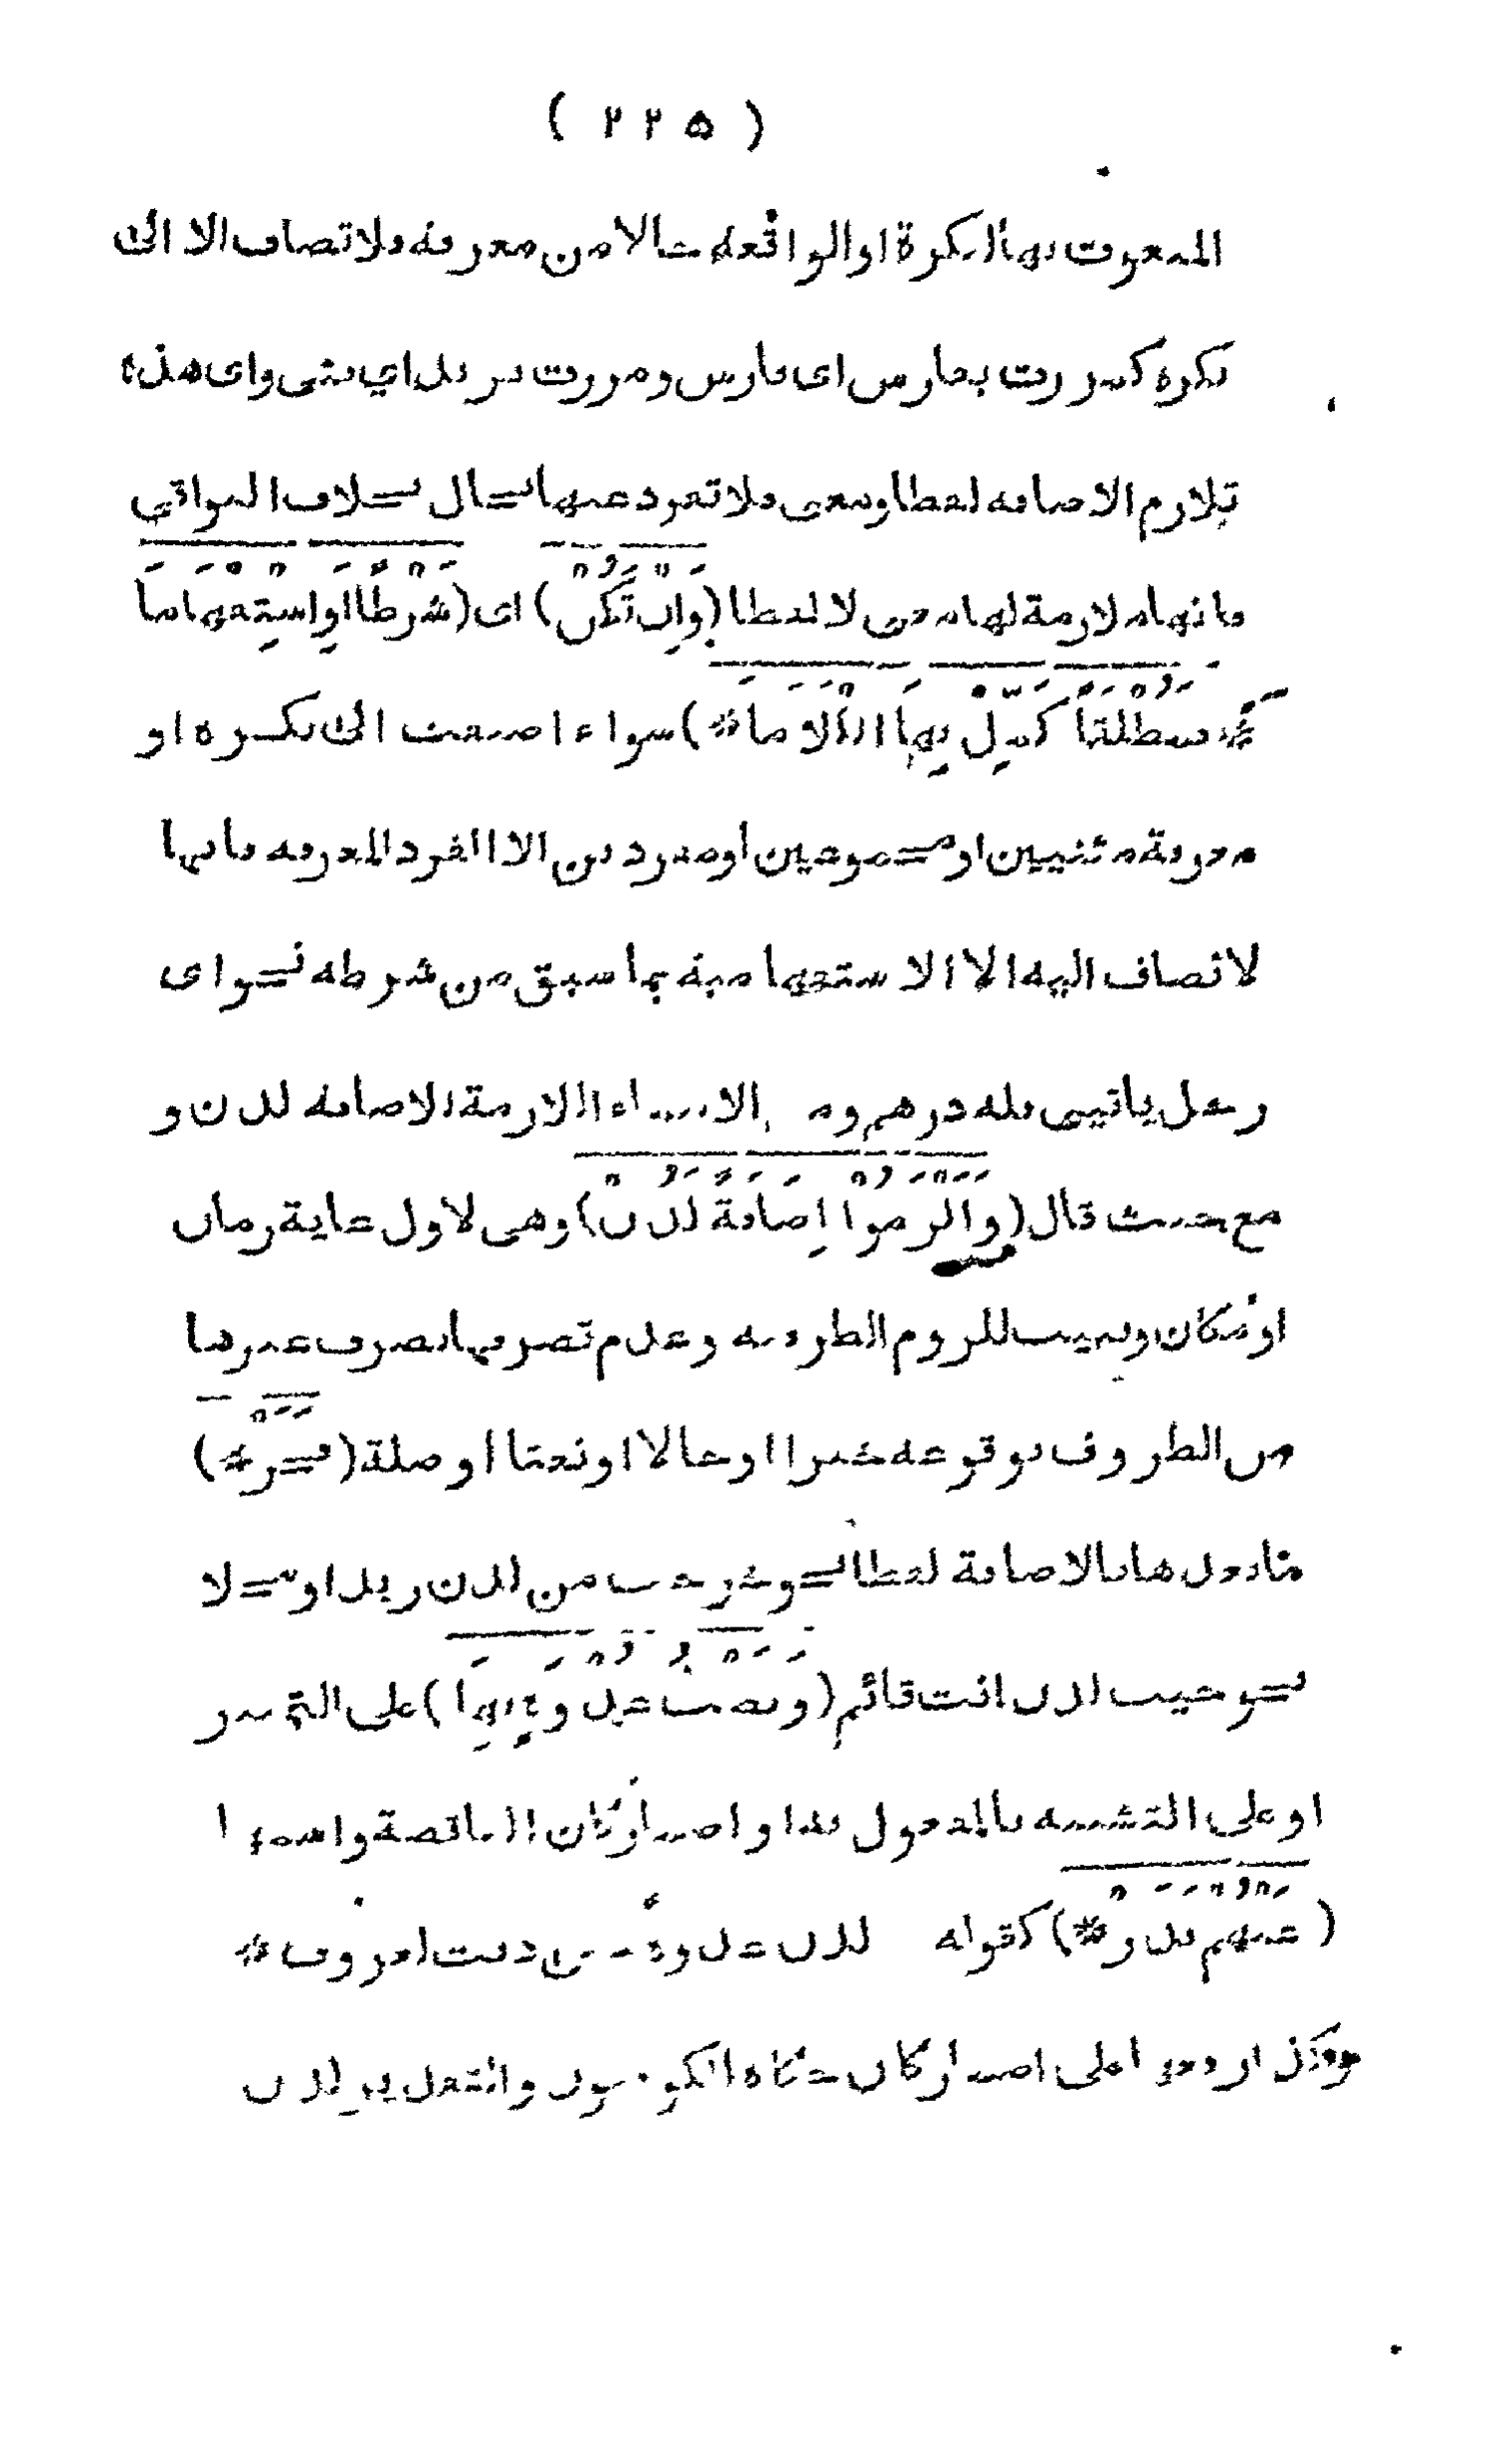 ( ٢٢٥ )
المنعوت بها النكرة او الواقعة حالا من معرفة فلا تضاف الا الى
نكرة كمررت بفارس اى فارس ومررت بزيد اي فتى واى هذه
تلازم الاضافة لفظا ومعنى فلا تفرد عنها بحال بخلاف البواقي
فانها ملازمة لها معنى لا لفظا (وَاِنْ تَكُنْ) اى (شَرْطًا اَوِ اسْتِفْهَامًا
* فَمُطْلَقًا كَمِّلْ بِهَا الْكَلَامَا *) سواء اضيفت الى نكرة او
معرفة مثنيين او مجموعين او مفردين الا المفرد المعرفة فانها
لا تضاف اليه الا الاستفهامية بما سبق من شرطه نحو اى
رجل ياتيني فله درهم و الاسماء اللازمة للاضافة لدن و
مع حيث قال (وَاَلْزَمُوْا اِضَافَةً لَدُنْ) وهى لاول غاية زمان
او مكان وبنيت للزوم الظرفية وعدم تصرفها تصرف غيرها
من الظروف بوقوعه خبرا او حالا او نعتا او صلة (فَجَرْ *)
ما بعدها بالاضافة لفظا نحو من لدن زيد او محلا
نحو حيث لدن انت قائم (ونصب غدوة بها) على التمييز
او على التشبيه بالمفعول به او اضمار كان الناقصة واسمها
(عَنْهُمْ نَدَرْ *) كقوله لدن غدوة حتى دنت لغروب *
على اضمار كان